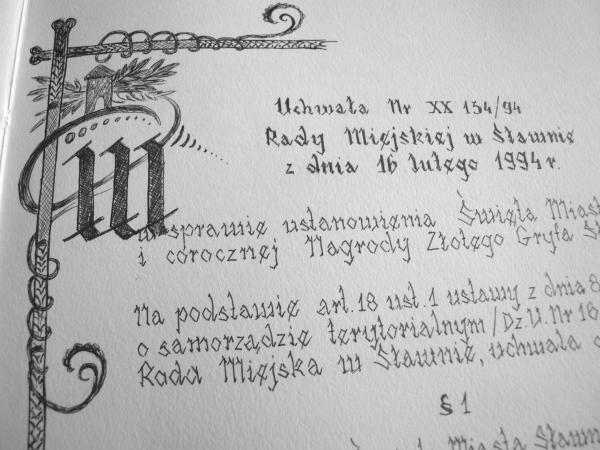 Uchwała Nr XX 154/94
Rady Miejskiej w Sławnie
z dnia 16 lutego 1994 r.
w sprawie ustanowienia Święta Miast
i corocznej Nagrody Złotego Gryfa
Na podstawie art. 18 ust. 1 ustawy z dnia 8
o samorządzie terytorialnym /Dz.U. Nr 16
Rada Miejska w Sławnie, uchwala
§ 1
Miasta